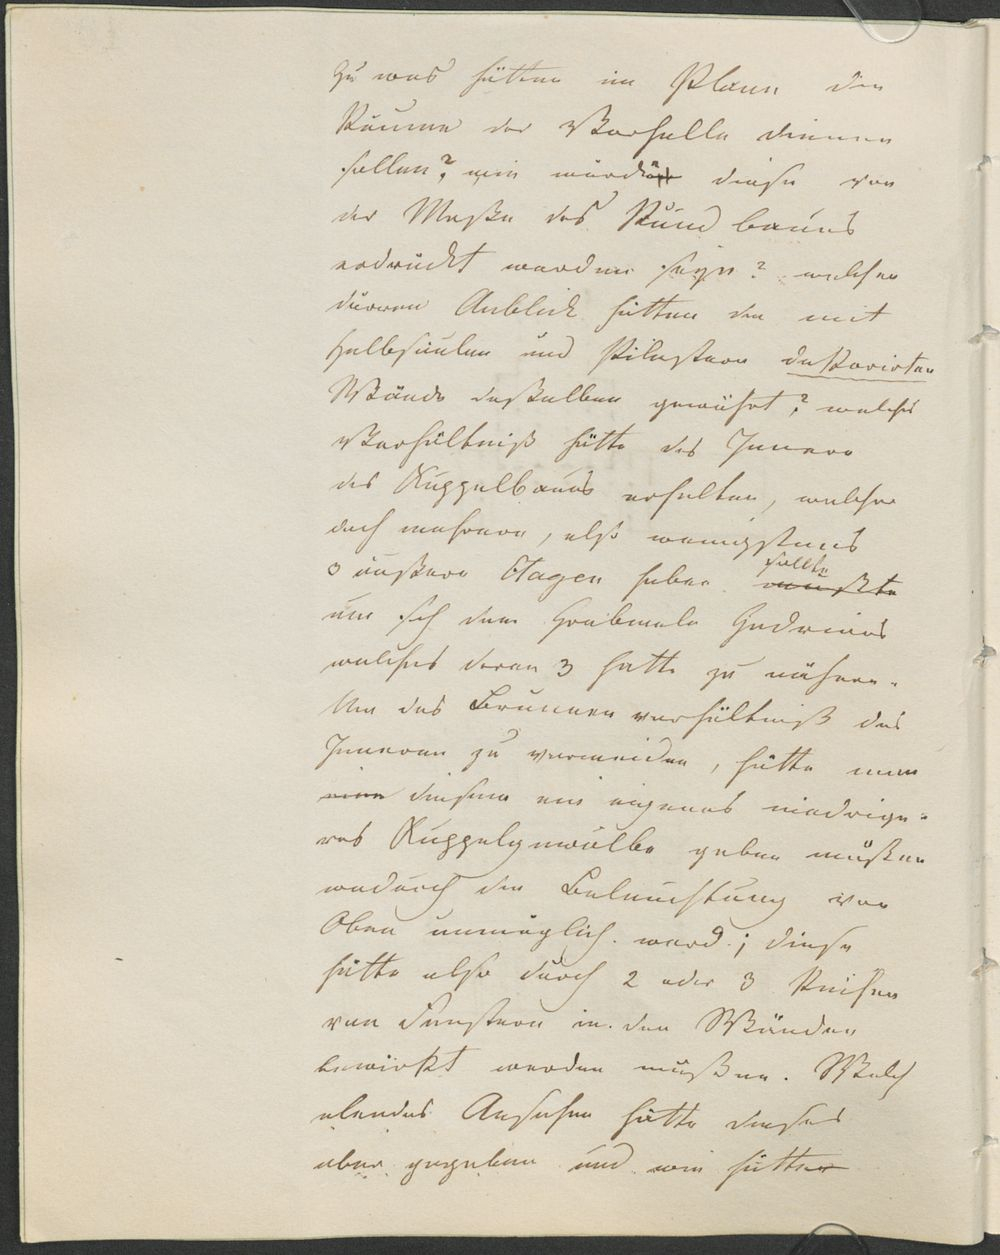 Zu was hätten im Plann die
Räume der Vorhalle dienen
sollen? wie würden diese von
der Maße des Rund baues
erdrückt worden seyn? welchen
dürren Anblick hätten die mit
Halbsäulen und Pilastern dekorirten
Wände deßelben gewährt? welches
Verhältniß hätte das Innere
des Kuppelbaues erhalten, welcher
doch mehrere, also wenigstens
3 äußere Etagen haben sollte
um sich dem Grabmale Hadrians
welches deren 3 hatte zu nähern.
Um das Brunnenverhältniß des
Inneren zu vermeiden, hätte man
diesem ein eigenes niedrige-
res Kuppelgewölbe geben müßen
wodurch die Beleuchtung von
Oben unmöglich ward; diese
hätte also durch 2 oder 3 Reihen
von Fenstern in den Wänden
bewirkt werden müßen. Welch
elendes Ansehen hätte dieses
aber gegeben und wie hätten